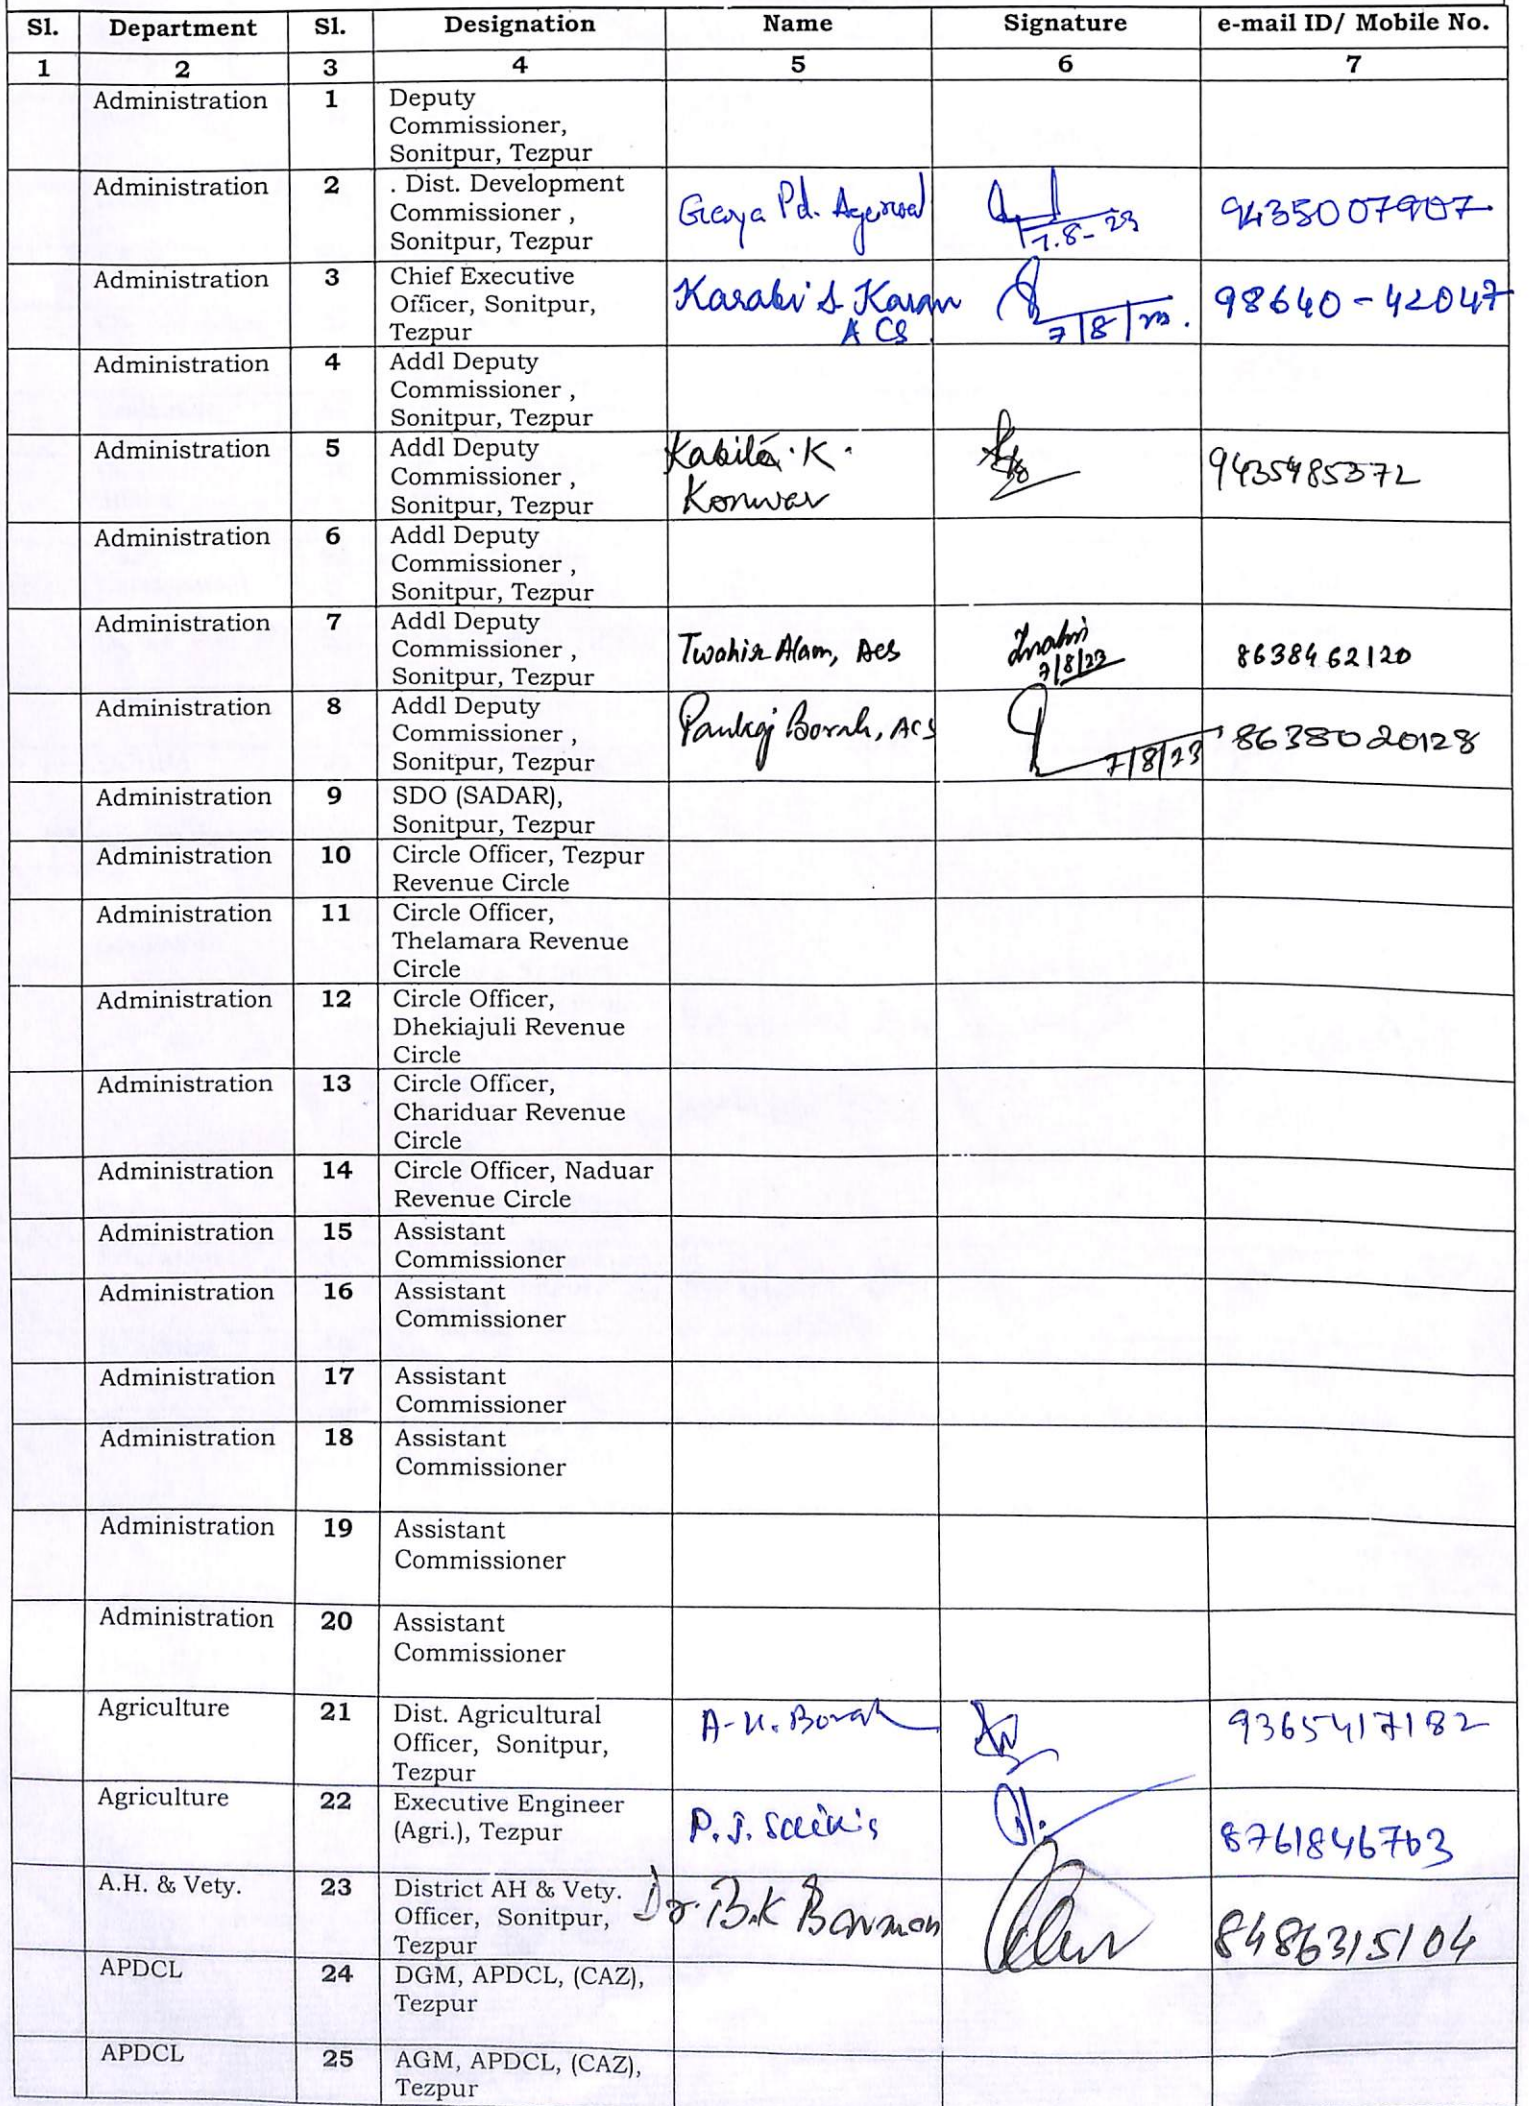 Sl. Department Sl. Designation Name Signature e-mail ID/ Mobile No.
1 2 3 4 5 6 7
Administration 1 Deputy
Commissioner,
Sonitpur, Tezpur
Administration 2 . Dist. Development
Commissioner ,
Sonitpur, Tezpur
Pd. Agerwal
7.8-23
9435007907
Administration 3 Chief Executive
Officer, Sonitpur,
Tezpur
Karabi S Karan
ACS
7/8/23.
98640-42047
Administration 4 Addl Deputy
Commissioner ,
Sonitpur, Tezpur
Administration 5 Addl Deputy
Commissioner ,
Sonitpur, Tezpur
Kabita.K.
Konwar
9435485372
Administration 6 Addl Deputy
Commissioner ,
Sonitpur, Tezpur
Administration 7 Addl Deputy
Commissioner ,
Sonitpur, Tezpur
Twahir Alam, ACS
7/8/23
8638462120
Administration 8 Addl Deputy
Commissioner ,
Sonitpur, Tezpur
Pankaj Borah, ACS
7/8/23
8638020128
Administration 9 SDO (SADAR),
Sonitpur, Tezpur
Administration 10 Circle Officer, Tezpur
Revenue Circle
Administration 11 Circle Officer,
Thelamara Revenue
Circle
Administration 12 Circle Officer,
Dhekiajuli Revenue
Circle
Administration 13 Circle Officer,
Chariduar Revenue
Circle
Administration 14 Circle Officer, Naduar
Revenue Circle
Administration 15 Assistant
Commissioner
Administration 16 Assistant
Commissioner
Administration 17 Assistant
Commissioner
Administration 18 Assistant
Commissioner
Administration 19 Assistant
Commissioner
Administration 20 Assistant
Commissioner
Agriculture 21 Dist. Agricultural
Officer, Sonitpur,
Tezpur
Borah
9365417182
Agriculture 22 Executive Engineer
(Agri.), Tezpur
P. J.
8761846703
A.H. & Vety. 23 District AH & Vety.
Officer, Sonitpur,
Tezpur
Dr. B.K Barman
8486315104
APDCL 24 DGM, APDCL, (CAZ),
Tezpur
APDCL 25 AGM, APDCL, (CAZ),
Tezpur